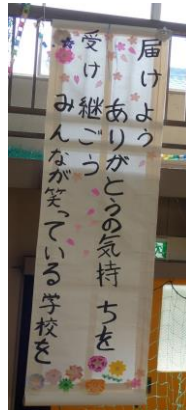 届けよう
ありがとうの気持ちを
受け継ごう
みんなが笑っている学校を